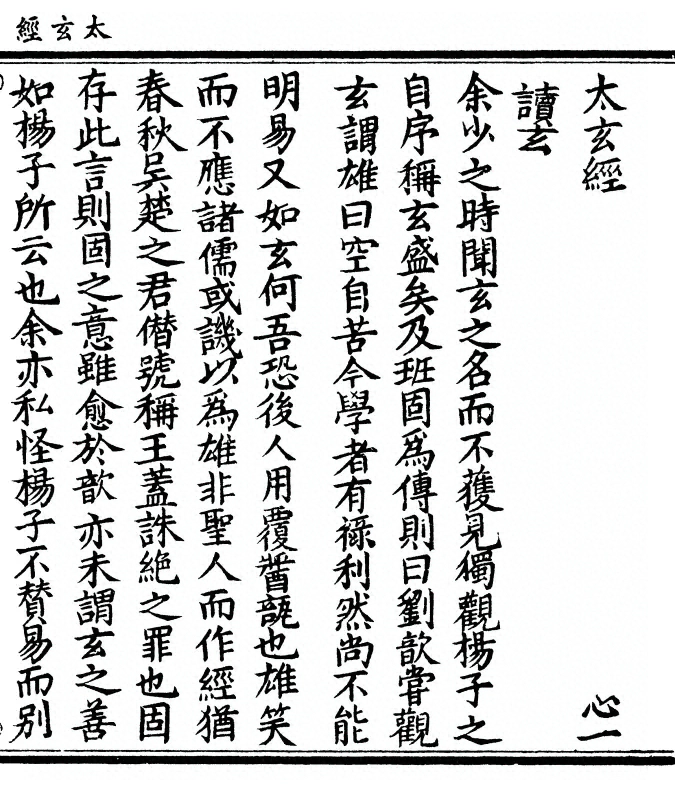 太玄經
太玄經 心一
讀玄
余少之時聞玄之名而不獲見獨觀楊子之
自序稱玄盛矣及班固爲傳則曰劉歆嘗觀
玄謂雄曰空自苦今學者有祿利然尚不能
明易又如玄何吾恐後人用覆醬瓿也雄笑
而不應諸儒或譏以爲雄非聖人而作經猶
春秋吳楚之君僭號稱王蓋誅絶之罪也固
存此言則固之意雖愈於歆亦未謂玄之善
如楊子所云也余亦私怪楊子不贊易而别